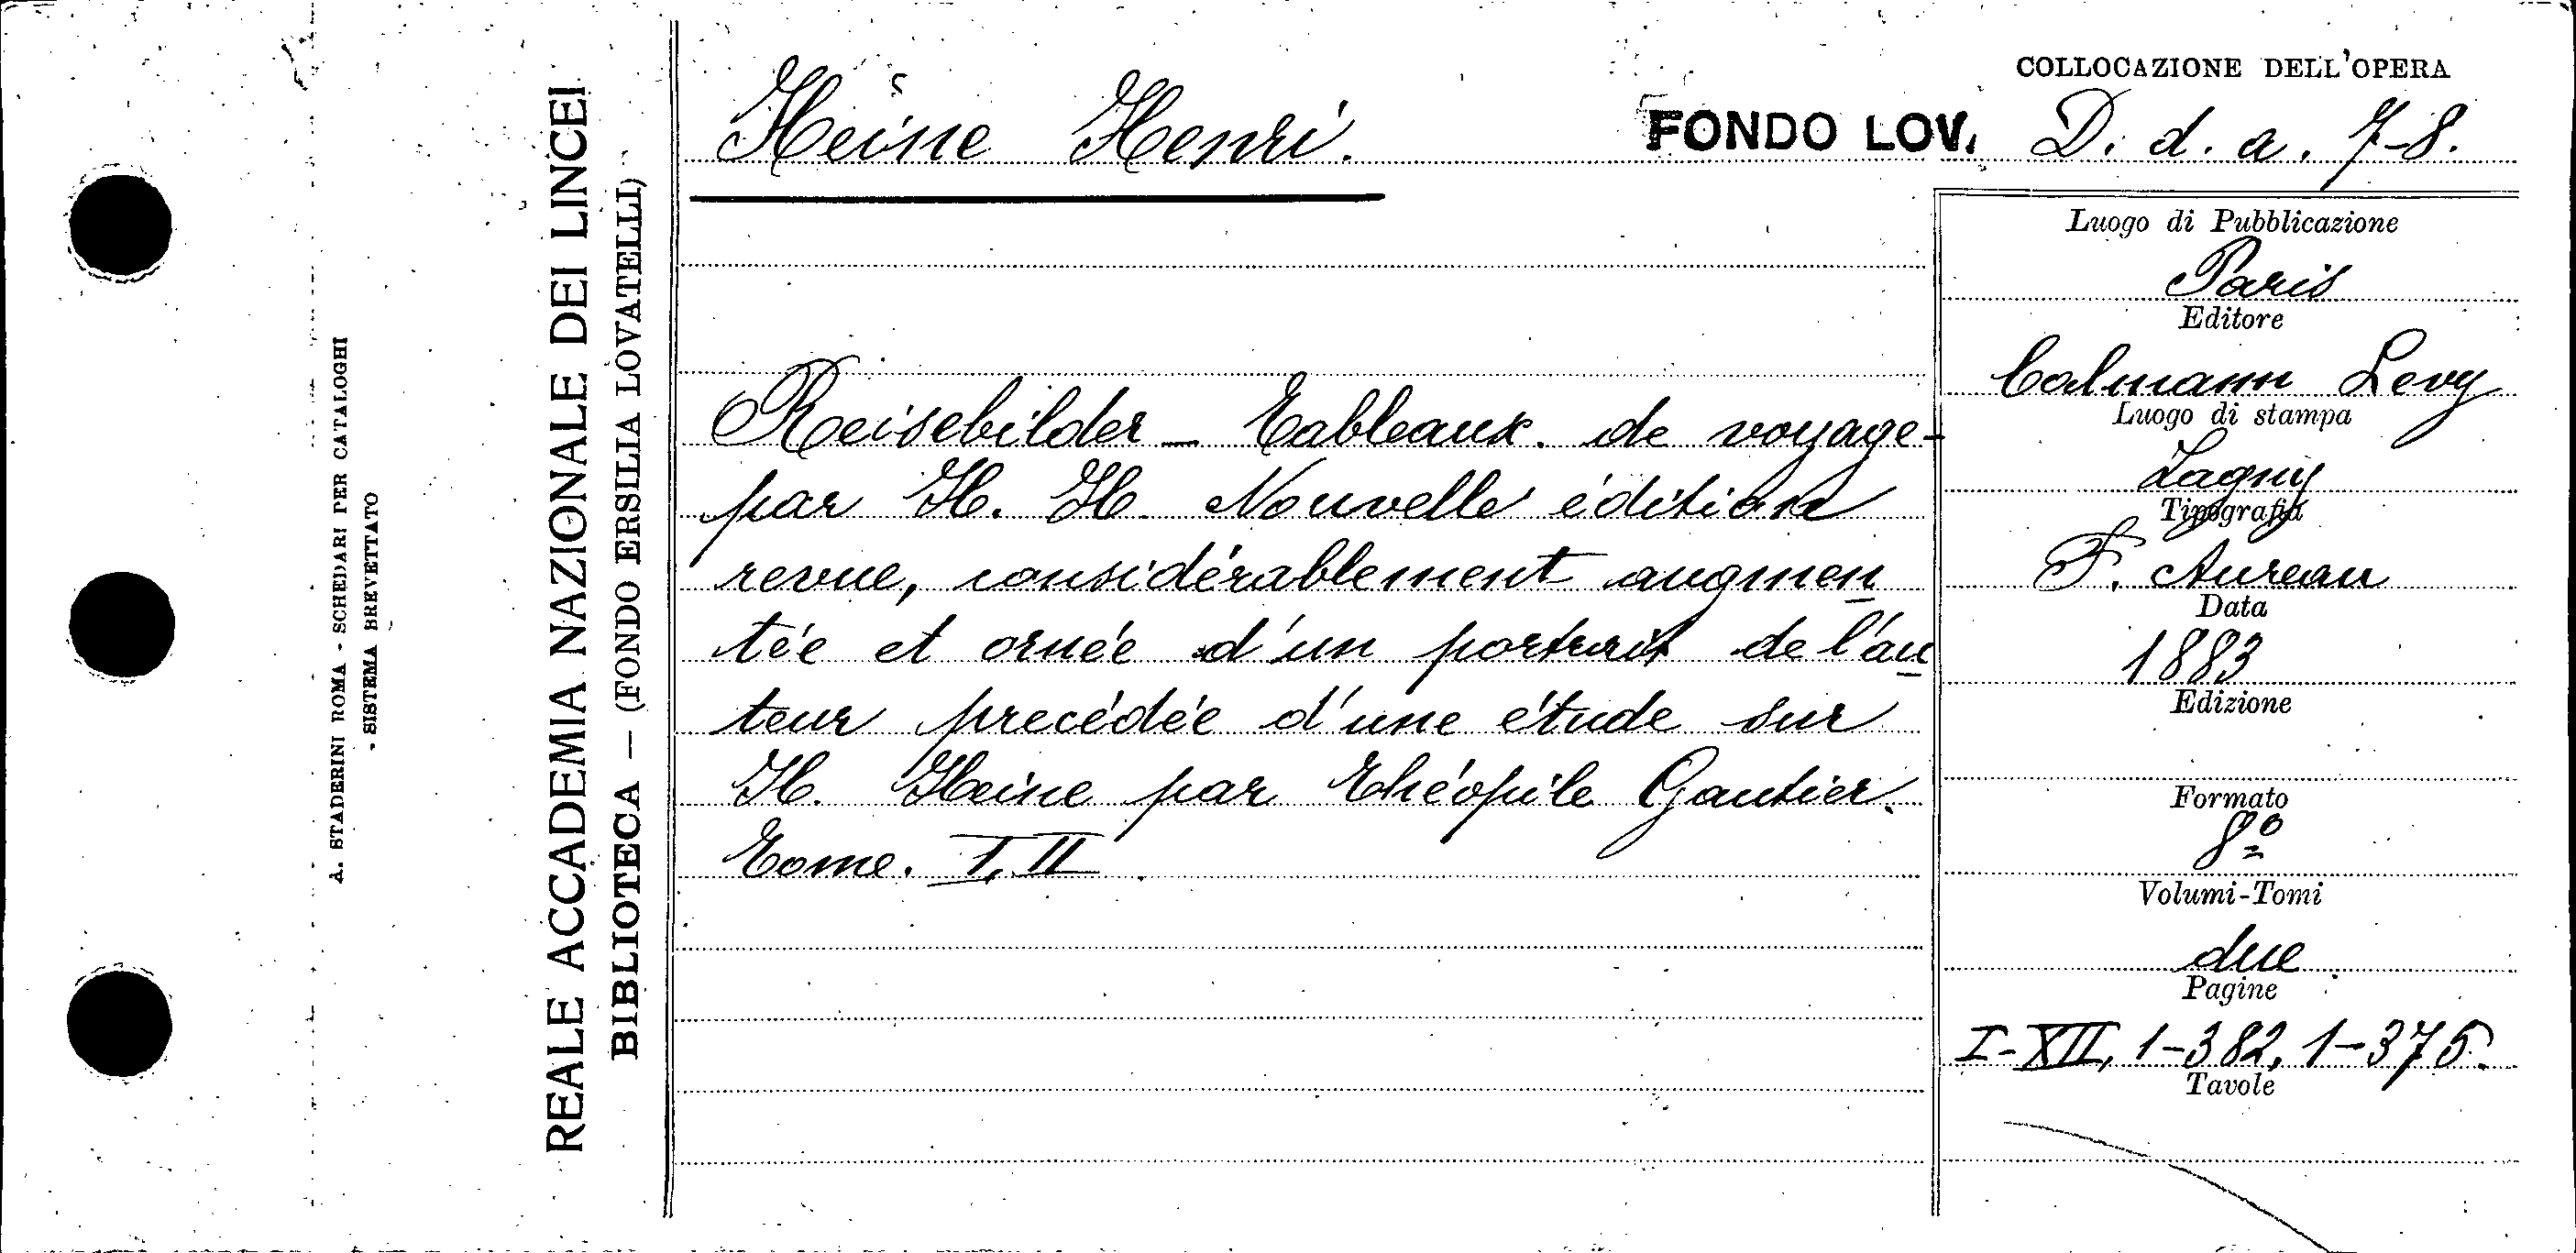 A. STADERINI ROMA - SCHEDARI PER CATALOGHI
- SISTEMA BREVETTATO
REALE ACCADEMIA NAZIONALE DEI LINCEI
BIBLIOTECA — (FONDO ERSILIA LOVATELLI)
Heine Henri.
FONDO LOV.
COLLOCAZIONE DELL'OPERA
D. d. a. 7-8.
Reisebilder - Tableaux de voyage -
par H. H. Nouvelle édition
revue, considérablement augmen
tée et ornée d'un portrait de l'au
teur precédée d'une étude sur
H. Heine par Théopile Gautier.
Tome. I, II.
Luogo di Pubblicazione
Paris
Editore
Calmann Levy
Luogo di stampa
Lagny
Tipografia
F. Aureau
Data
1883
Edizione
Formato
8º
Volumi-Tomi
due
Pagine
I-XII, 1-382, 1-375.
Tavole